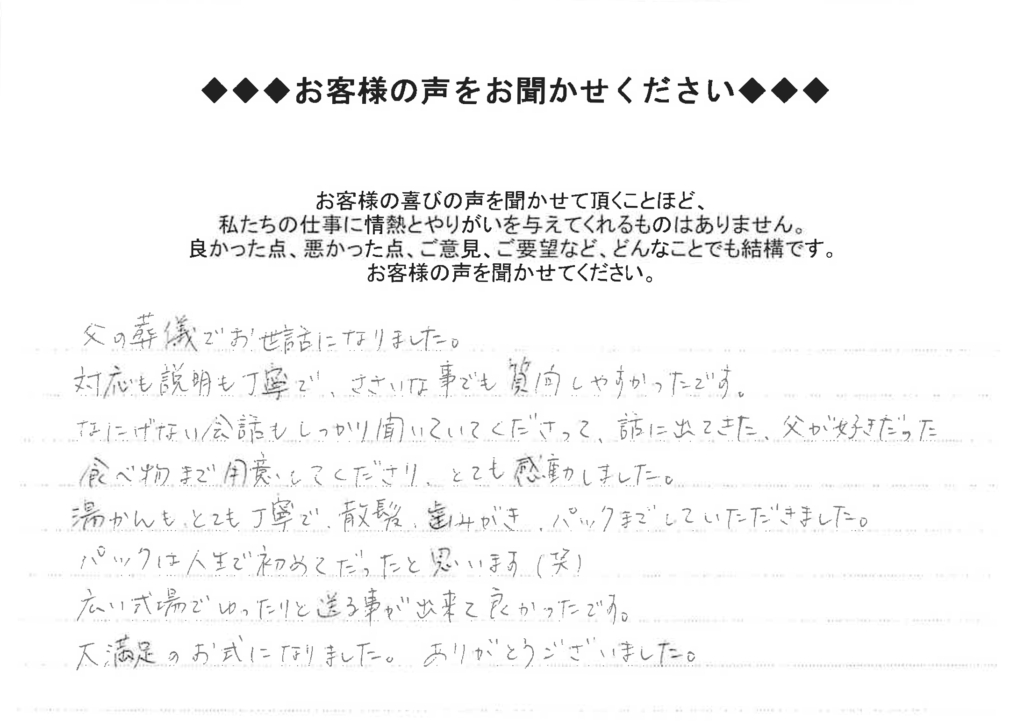 ◆◆◆お客様の声をお聞かせください◆◆◆
お客様の喜びの声を聞かせて頂くことほど、
私たちの仕事に情熱とやりがいを与えてくれるものはありません。
良かった点、悪かった点、ご意見、ご要望など、どんなことでも結構です。
お客様の声を聞かせてください。
父の葬儀でお世話になりました。
対応も説明も丁寧で、ささいな事でも質問しやすかったです。
なにげない会話もしっかり聞いていてくださって、話に出てきた、父が好きだった
食べ物まで用意してくださり、とても感動しました。
湯かんも、とても丁寧で、散髪、歯みがき、パックまでしていただきました。
パックは人生で初めてだったと思います(笑)
広い式場でゆったりと送る事が出来て良かったです。
大満足のお式になりました。ありがとうございました。